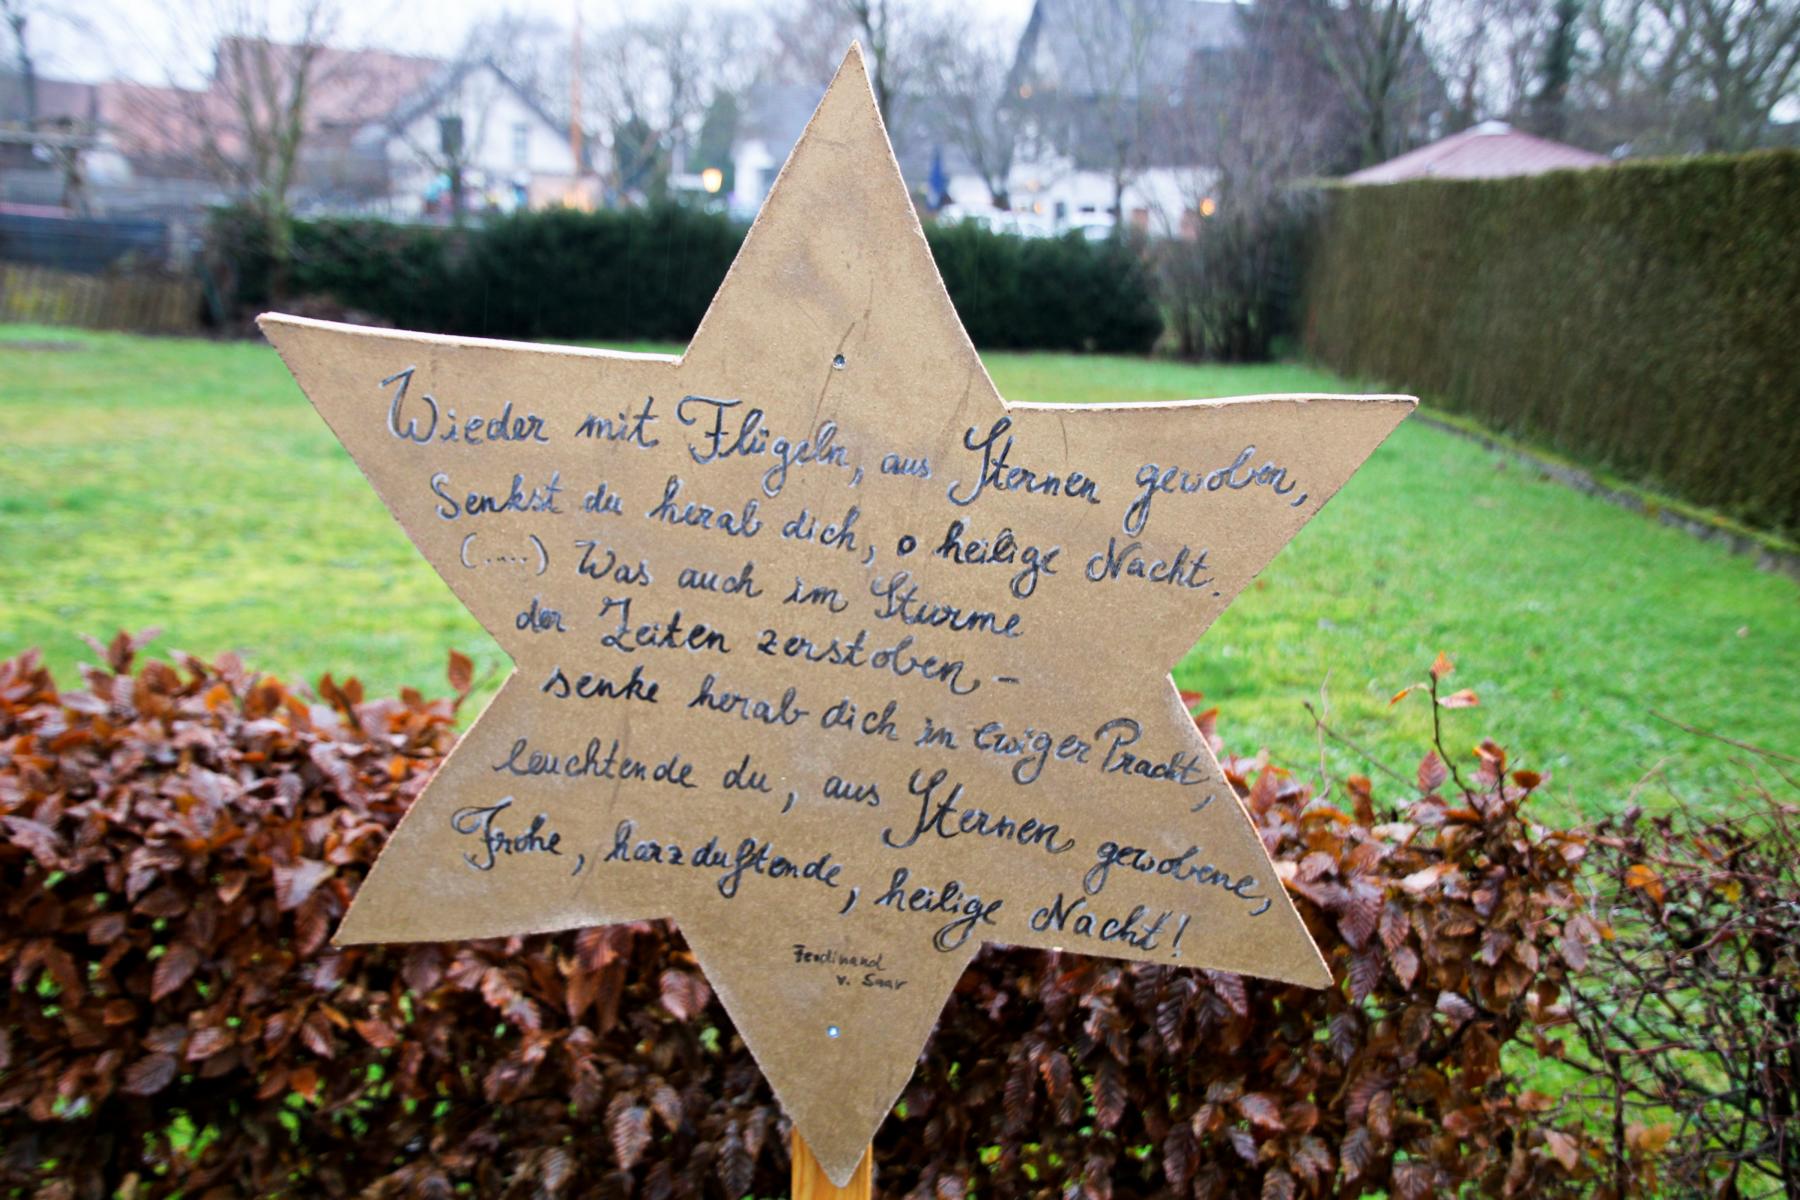 Wieder mit Flügeln, aus Sternen gewoben,
Senkst du herab dich, o heilige Nacht.
(.....) Was auch im Sturme
der Zeiten zerstoben -
senke herab dich in ewiger Pracht,
leuchtende du, aus Sternen gewobene,
Frohe, harzduftende, heilige Nacht!
Ferdinand
v. Saar